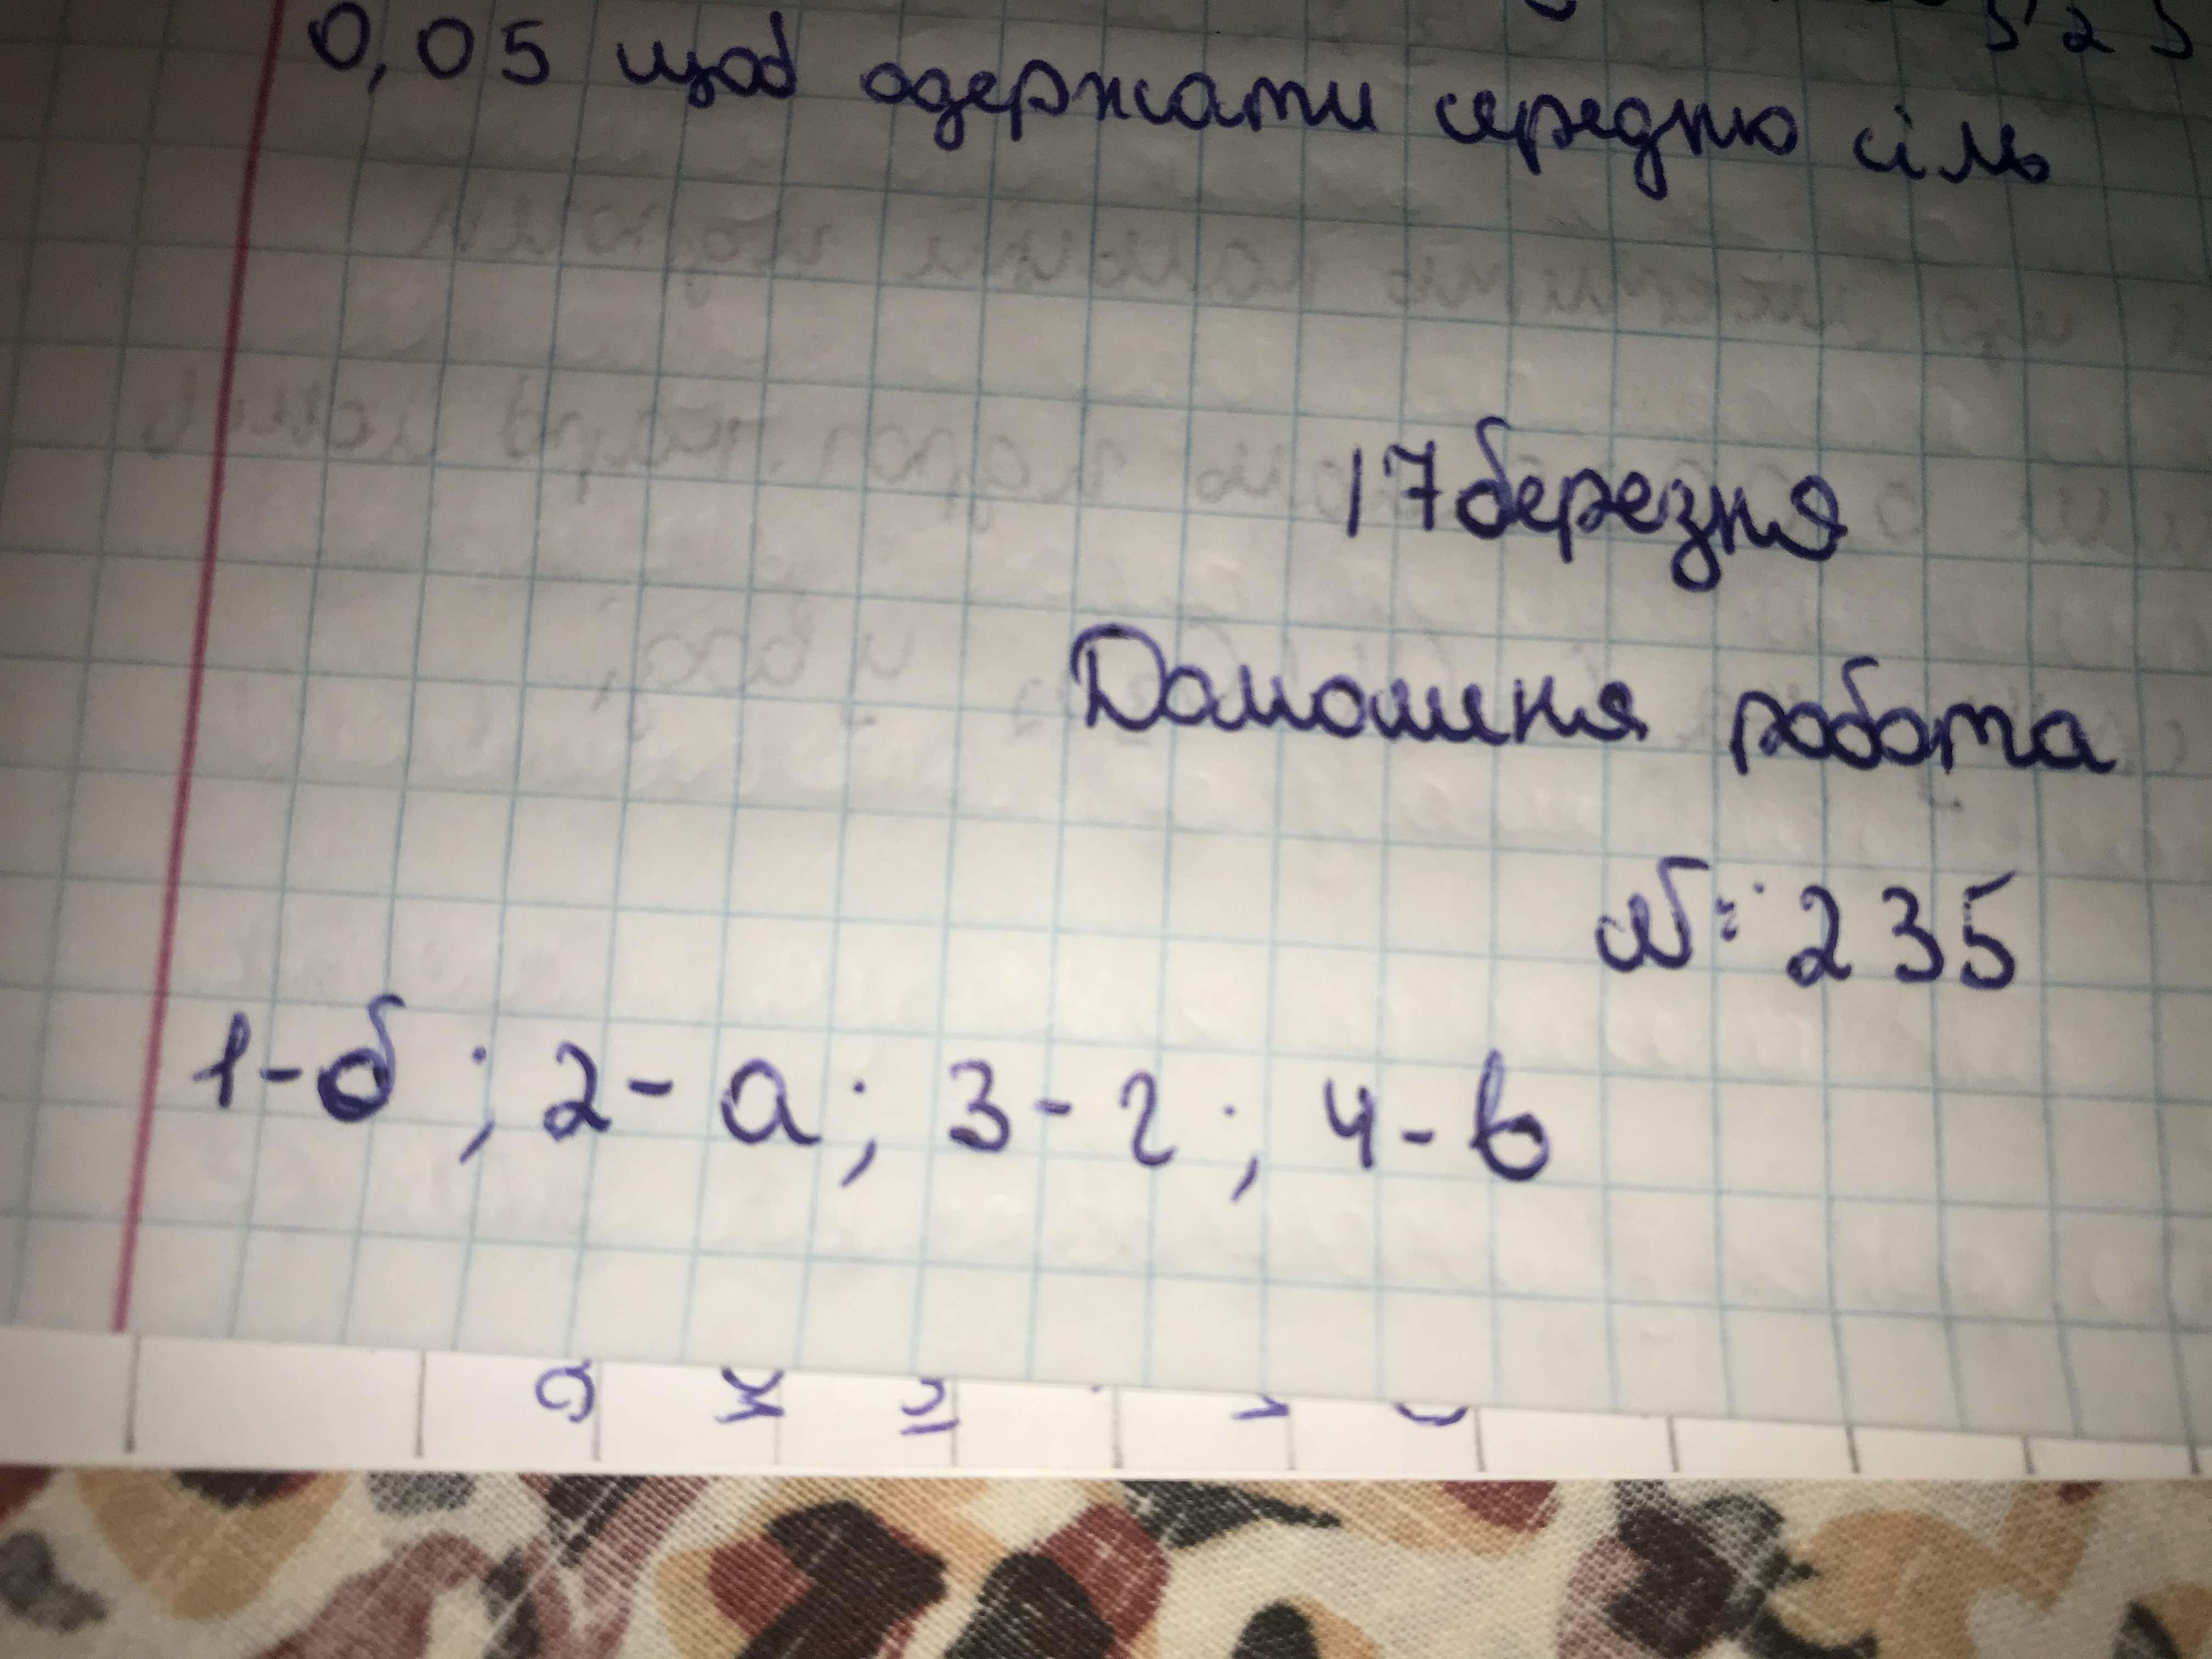 0,05 щоб одержати середню сіль
17 березня
Домошня робота
№: 235
1-б; 2-а; 3-г; 4-в